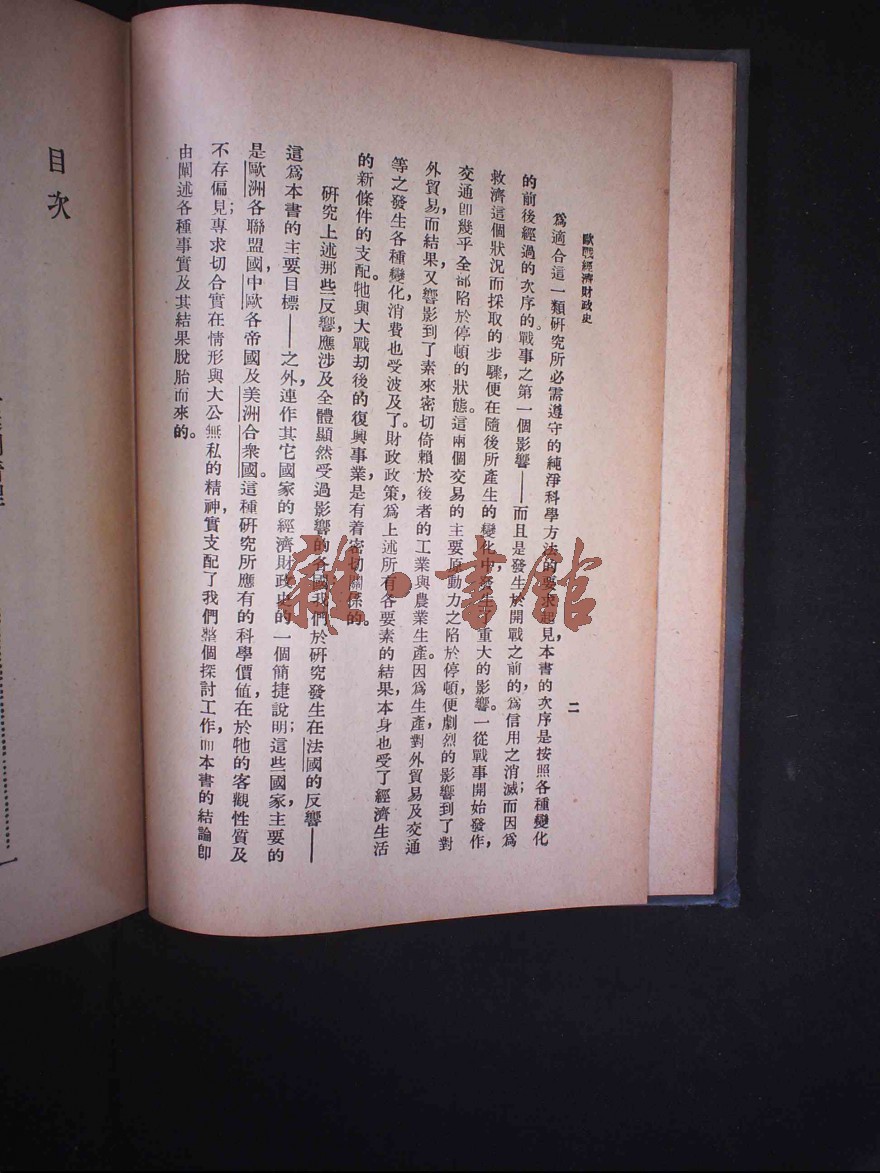 歐戰經濟財政史
二
爲適合這一類研究所必需遵守的純淨科學方法的要求起見,本書的次序是按照各種變化
的前後經過的次序的。戰事之第一個影響——而且是發生於開戰之前的,爲信用之消滅;而因爲
救濟這個狀況而採取的步驟,便在隨後所產生的變化中發生了重大的影響。一從戰事開始發作,
交通卽幾乎全部陷於停頓的狀態。這兩個交易的主要原動力之陷於停頓,便劇烈的影響到了對
外貿易,而結果,又響影到了素來密切倚賴於後者的工業與農業生產。因爲生產,對外貿易及交通
等之發生各種變化,消費也受波及了。財政政策,爲上述所有各要素的結果,本身也受了經濟生活
的新條件的支配。牠與大戰刧後的復興事業,是有着密切關係的。
研究上述那些反響,應涉及全體顯然受過影響的各國。我們於研究發生在法國的反響——
這爲本書的主要目標——之外,連作其它國家的經濟財政史的一個簡捷說明;這些國家,主要的
是歐洲各聯盟國,中歐各帝國及美洲合衆國。這種研究所應有的科學價值,在於牠的客觀性質及
不存偏見;專求切合實在情形與大公無私的精神,實支配了我們整個探討工作,而本書的結論卽
由闡述各種事實及其結果脫胎而來的。
目次
雜·書館